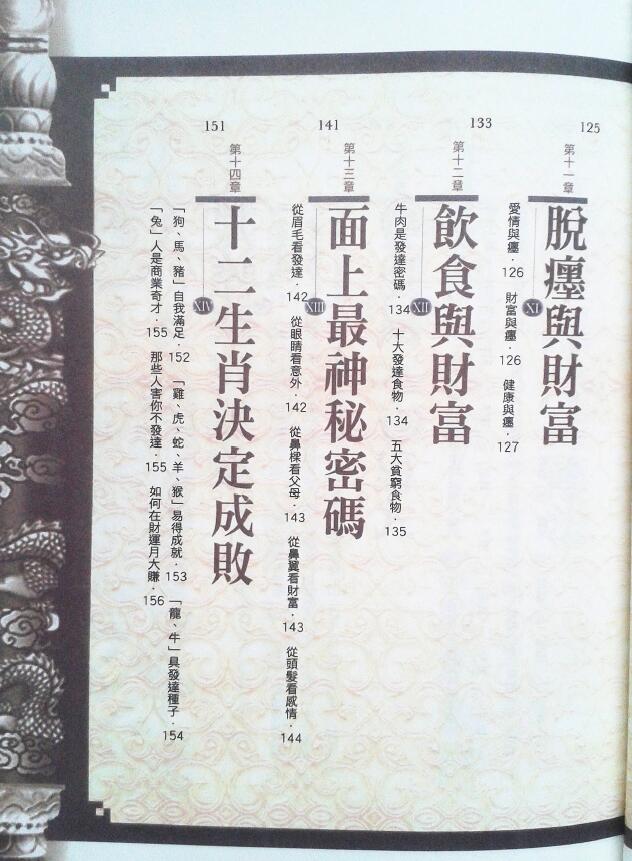 125
第十一章
脫癦與財富
XI
愛情與癦．126 財富與癦．126 健康與癦．127
133
第十二章
飲食與財富
XII
牛肉是發達密碼．134 十大發達食物．134 五大貧窮食物．135
141
第十三章
面上最神秘密碼
XIII
從眉毛看發達．142 從眼睛看意外．142 從鼻樑看父母．143 從鼻翼看財富．143 從頭髮看感情．144
151
第十四章
十二生肖決定成敗
XIV
「狗、馬、豬」自我滿足．152 「雞、虎、蛇、羊、猴」易得成就．153 「龍、牛」具發達種子．154
「兔」人是商業奇才．155 那些人害你不發達．155 如何在財運月大賺．156